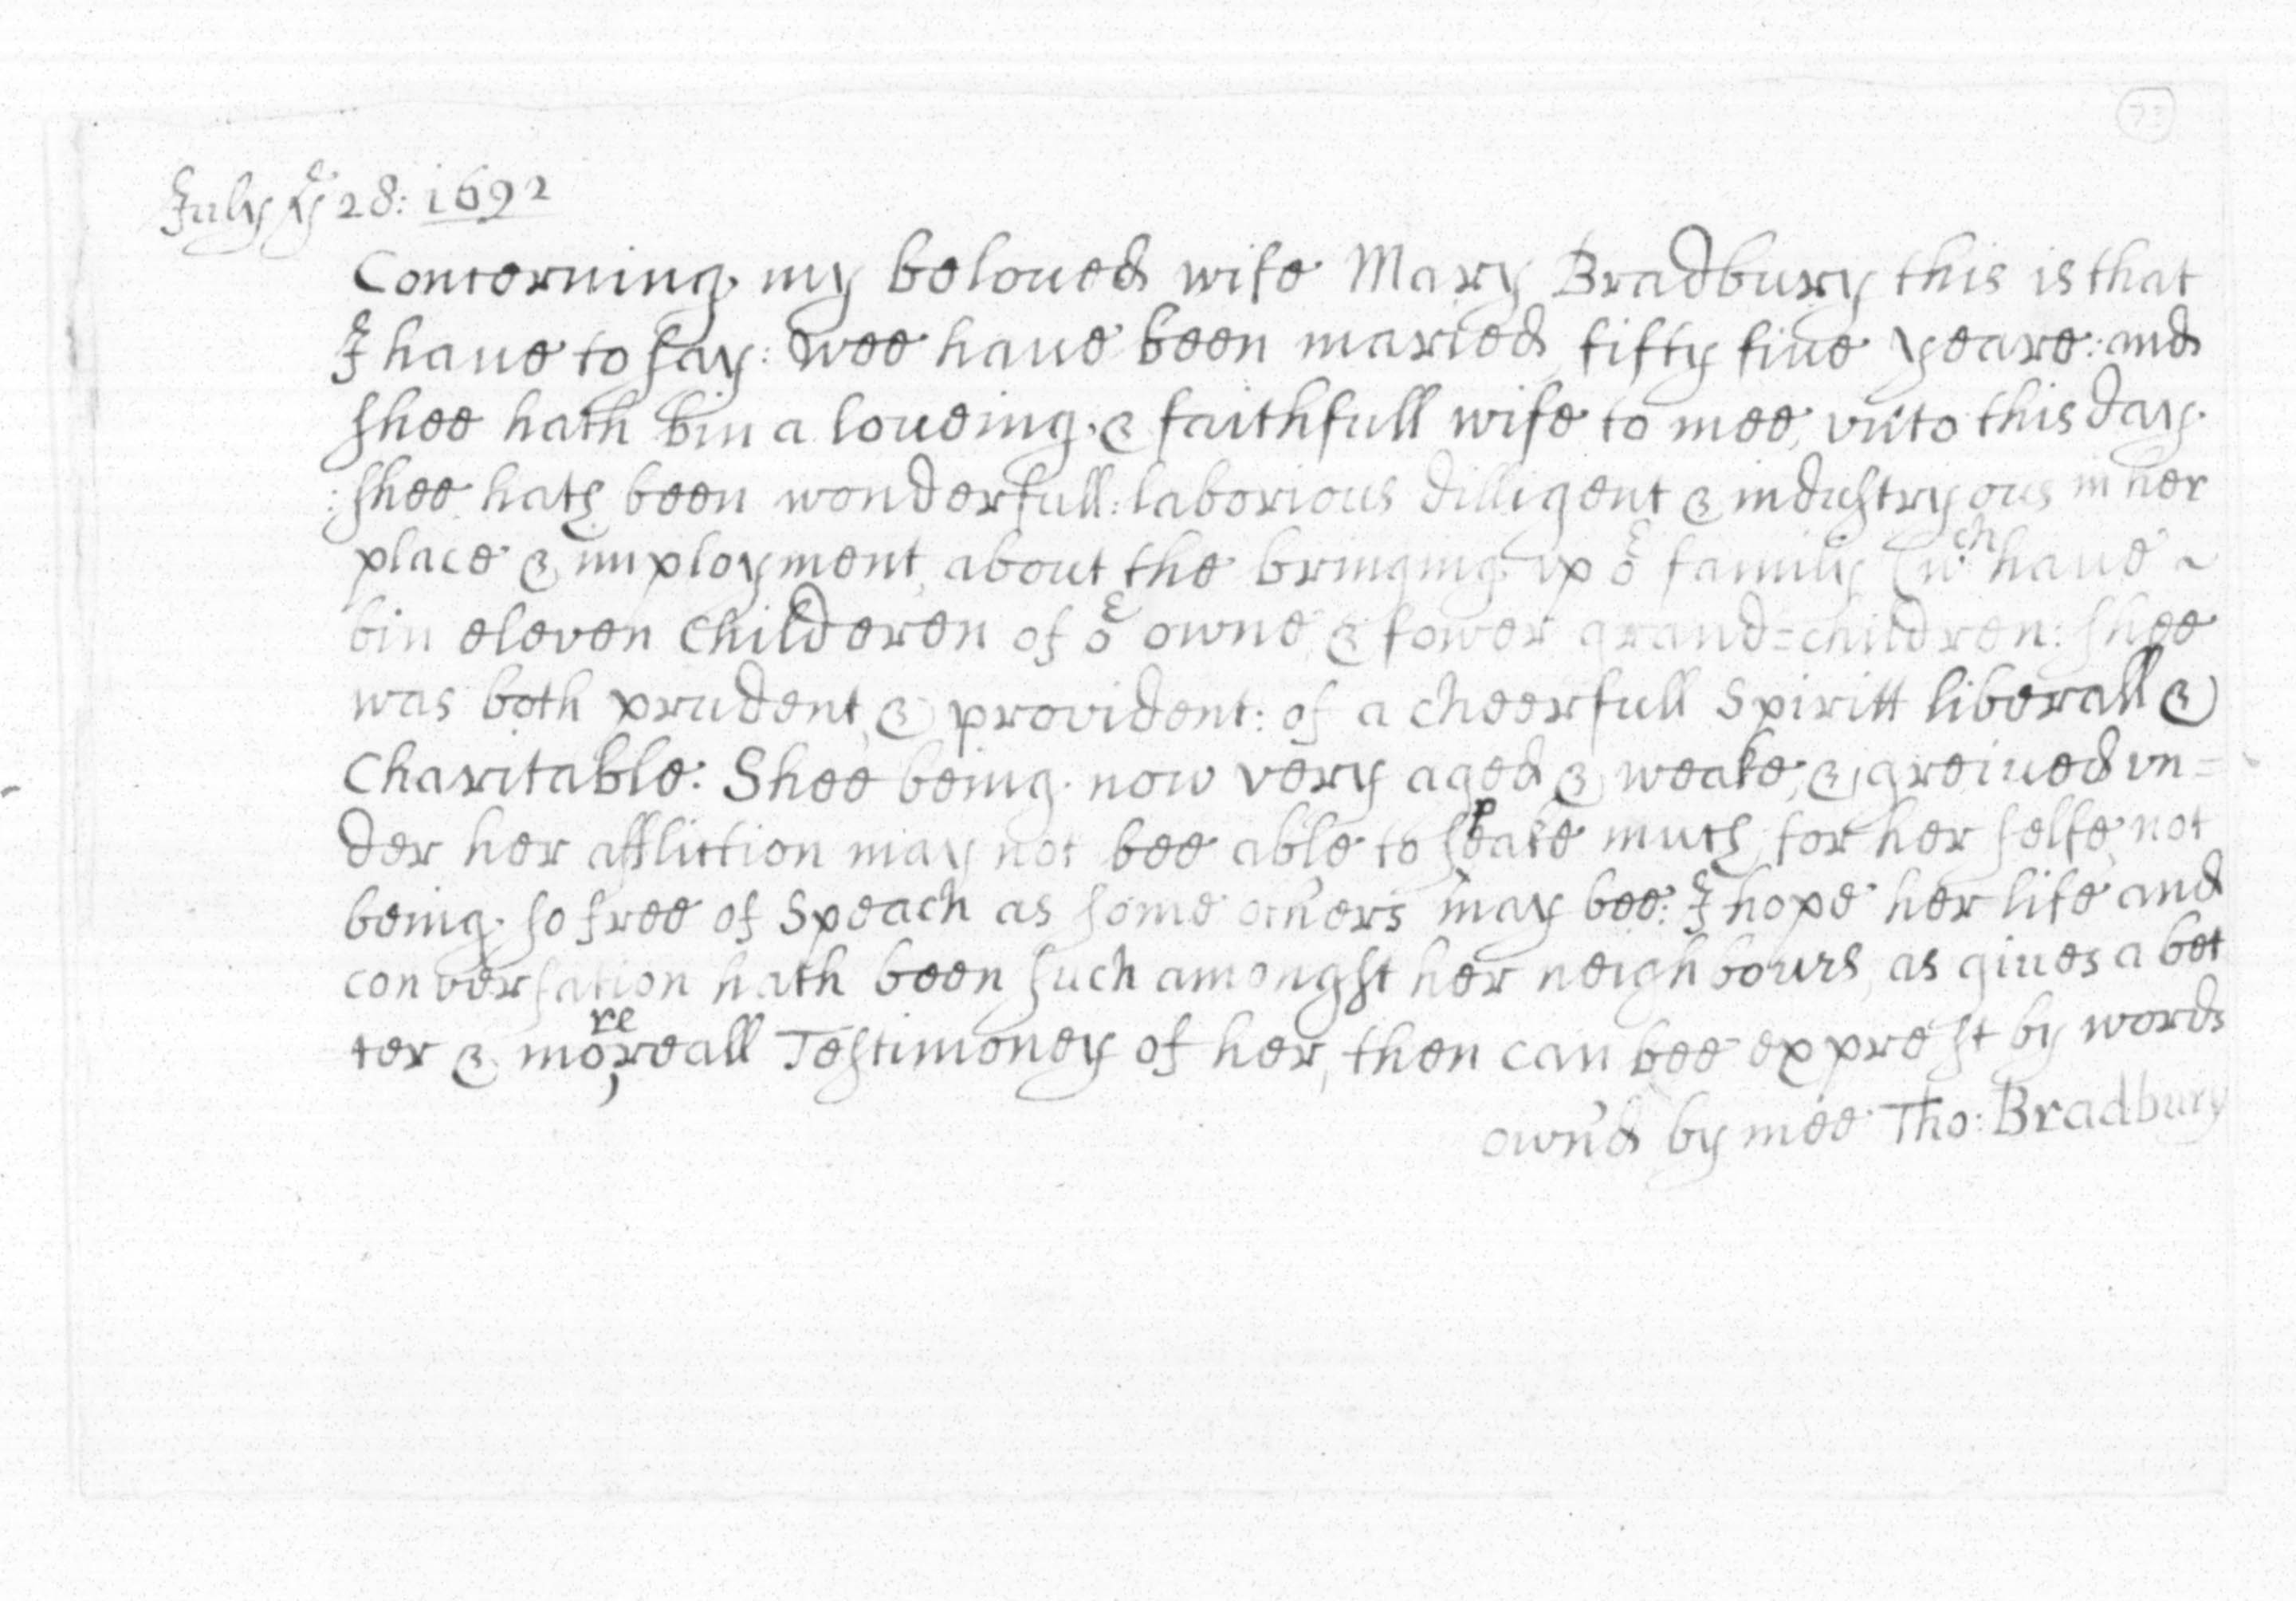 July ye 28: 1692
Concerning my beloued wife Mary Bradbury this is that
I haue to say: wee haue been maried fifty fiue yeare: and
shee hath bin a loueing & faithfull wife to mee, vnto this day
: shee hath been wonderfull: laborious dilligent & industryous in her
place & imployment, about the bringing vp or family (wch haue ~
bin eleven childeren of or owne, & fower grand=children: shee
was both prudent, & provident: of a cheerfull Spiritt liberall &
Charitable: Shee being now very aged & weake, & greiued vn=
der her affliction may not bee able to speake much for her selfe, not
being so free of Speach as some others may bee: I hope her life and
conversation hath been such amongst her neighbours, as giues a bet
ter & more reall Testimoney of her, then can bee exprest by words
own'd by mee Tho: Bradbury